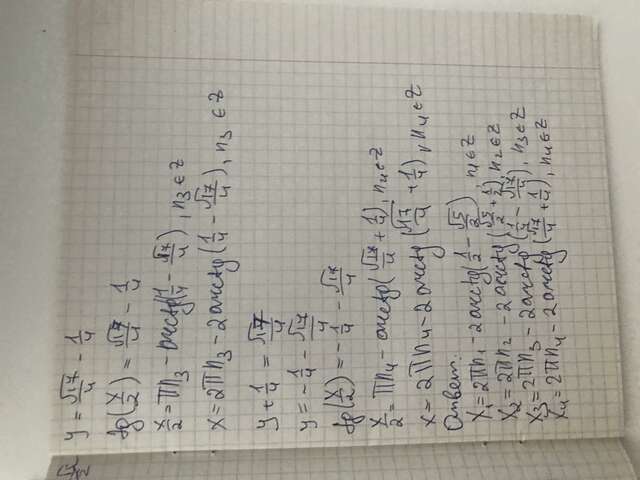 y = √17/4 - 1/4
tg(x/2) = √17/4 - 1/4
x/2 = πn₃ - arctg(1/4 - √17/4), n₃ ∈ Z
x = 2πn₃ - 2arctg(1/4 - √17/4), n₃ ∈ Z
y + 1/4 = √17/4
y = -1/4 - √17/4
tg(x/2) = -1/4 - √17/4
x/2 = πn₄ - arctg(√17/4 + 1/4), n₄ ∈ Z
x = 2πn₄ - 2arctg(√17/4 + 1/4), n₄ ∈ Z
Ответ:
x₁ = 2πn₁ - 2arctg(1/2 - √5/2), n₁ ∈ Z
x₂ = 2πn₂ - 2arctg(√5/2 + 1/2), n₂ ∈ Z
x₃ = 2πn₃ - 2arctg(1/4 - √17/4), n₃ ∈ Z
x₄ = 2πn₄ - 2arctg(√17/4 + 1/4), n₄ ∈ Z